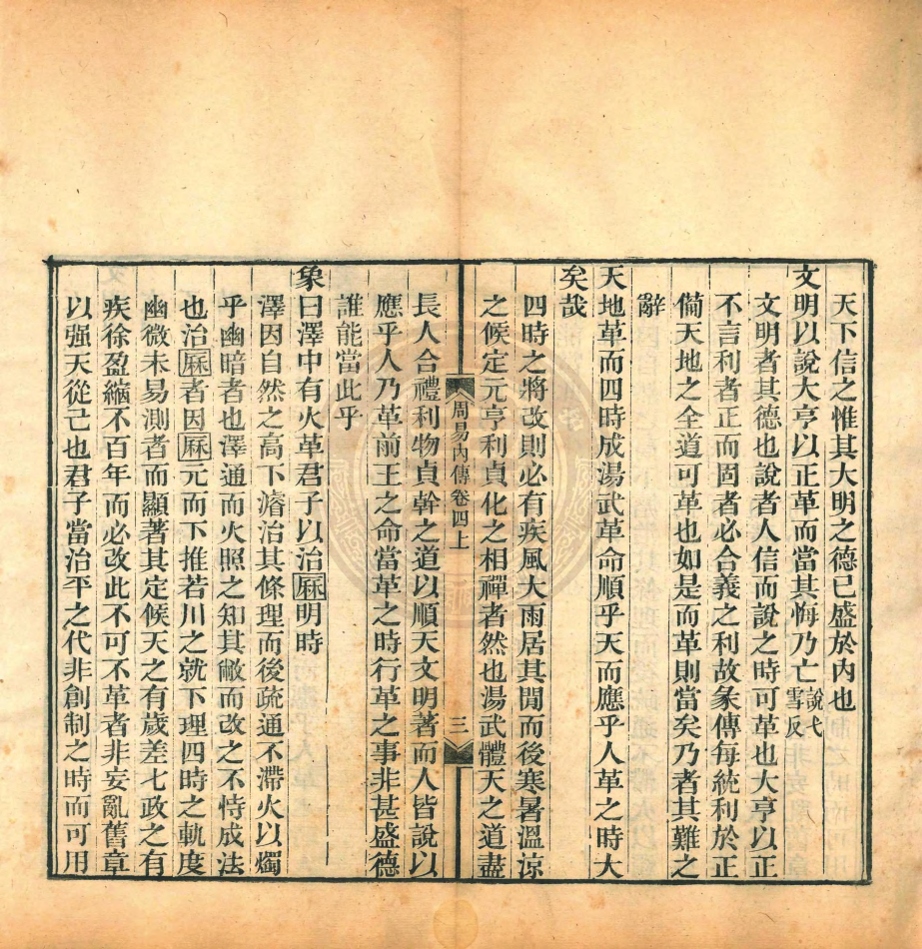 天下信之惟其大明之德已盛於內也
文明以說大亨以正革而當其悔乃亡說弋雪反
文明者其德也說者人信而說之時可革也大亨以正
不言利者正而固者必合義之利故彖傳每統利於正
僃天地之全道可革也如是而革則當矣乃者其難之
辭
天地革而四時成湯武革命順乎天而應乎人革之時大
矣哉
四時之將改則必有疾風大雨居其閒而後寒暑溫涼
之候定元亨利貞化之相禪者然也湯武體天之道盡
周易內傳卷四上
三
長人合禮利物貞幹之道以順天文明著而人皆說以
應乎人乃革前王之命當革之時行革之事非甚盛德
誰能當此乎
象曰澤中有火革君子以治厤明時
澤因自然之高下濬治其條理而後疏通不滯火以燭
乎幽暗者也澤通而火照之知其敝而改之不恃成法
也治厤者因厤元而下推若川之就下理四時之軌度
幽微未易測者而顯著其定候天之有歲差七政之有
疾徐盈縮不百年而必改此不可不革者非妄亂舊章
以强天從己也君子當治平之代非創制之時而可用